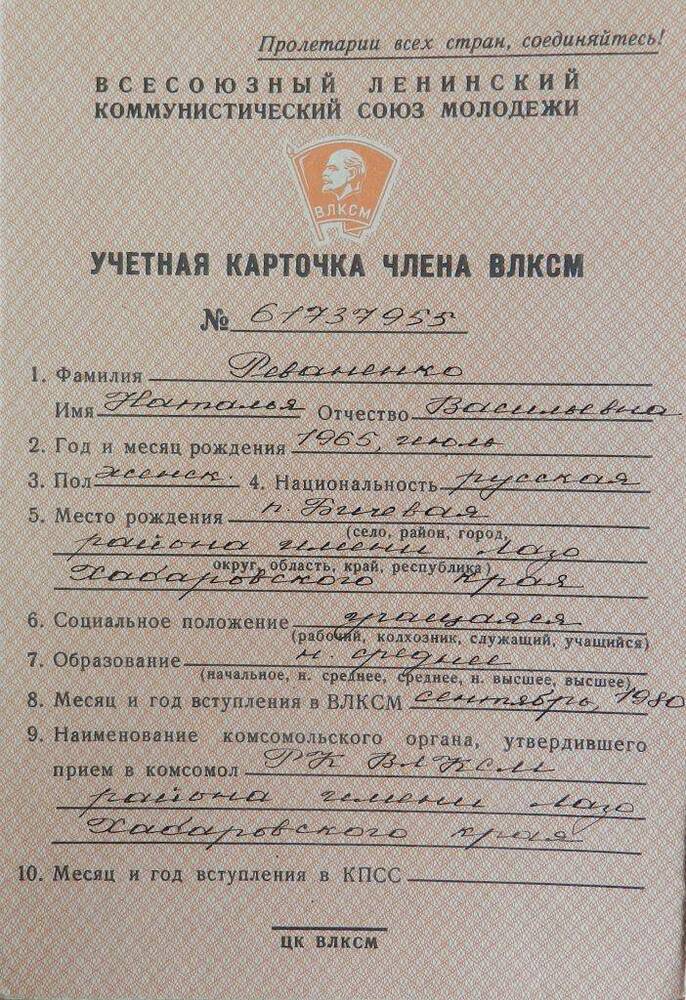 Пролетарии всех стран, соединяйтесь!
ВСЕСОЮЗНЫЙ ЛЕНИНСКИЙ
КОММУНИСТИЧЕСКИЙ СОЮЗ МОЛОДЕЖИ
ВЛКСМ
УЧЕТНАЯ КАРТОЧКА ЧЛЕНА ВЛКСМ
№ 61737955
1. Фамилия Реваненко
Имя Наталья Отчество Васильевна
2. Год и месяц рождения 1965, июль
3. Пол женск. 4. Национальность русская
5. Место рождения п. Бичевая
(село, район, город,
района имени Лазо
округ, область, край, республика)
Хабаровского края
6. Социальное положение учащаяся
(рабочий, колхозник, служащий, учащийся)
7. Образование н. среднее
(начальное, н. среднее, среднее, н. высшее, высшее)
8. Месяц и год вступления в ВЛКСМ сентябрь, 1980
9. Наименование комсомольского органа, утвердившего
прием в комсомол РК ВЛКСМ
района имени Лазо
Хабаровского края
10. Месяц и год вступления в КПСС
ЦК ВЛКСМ